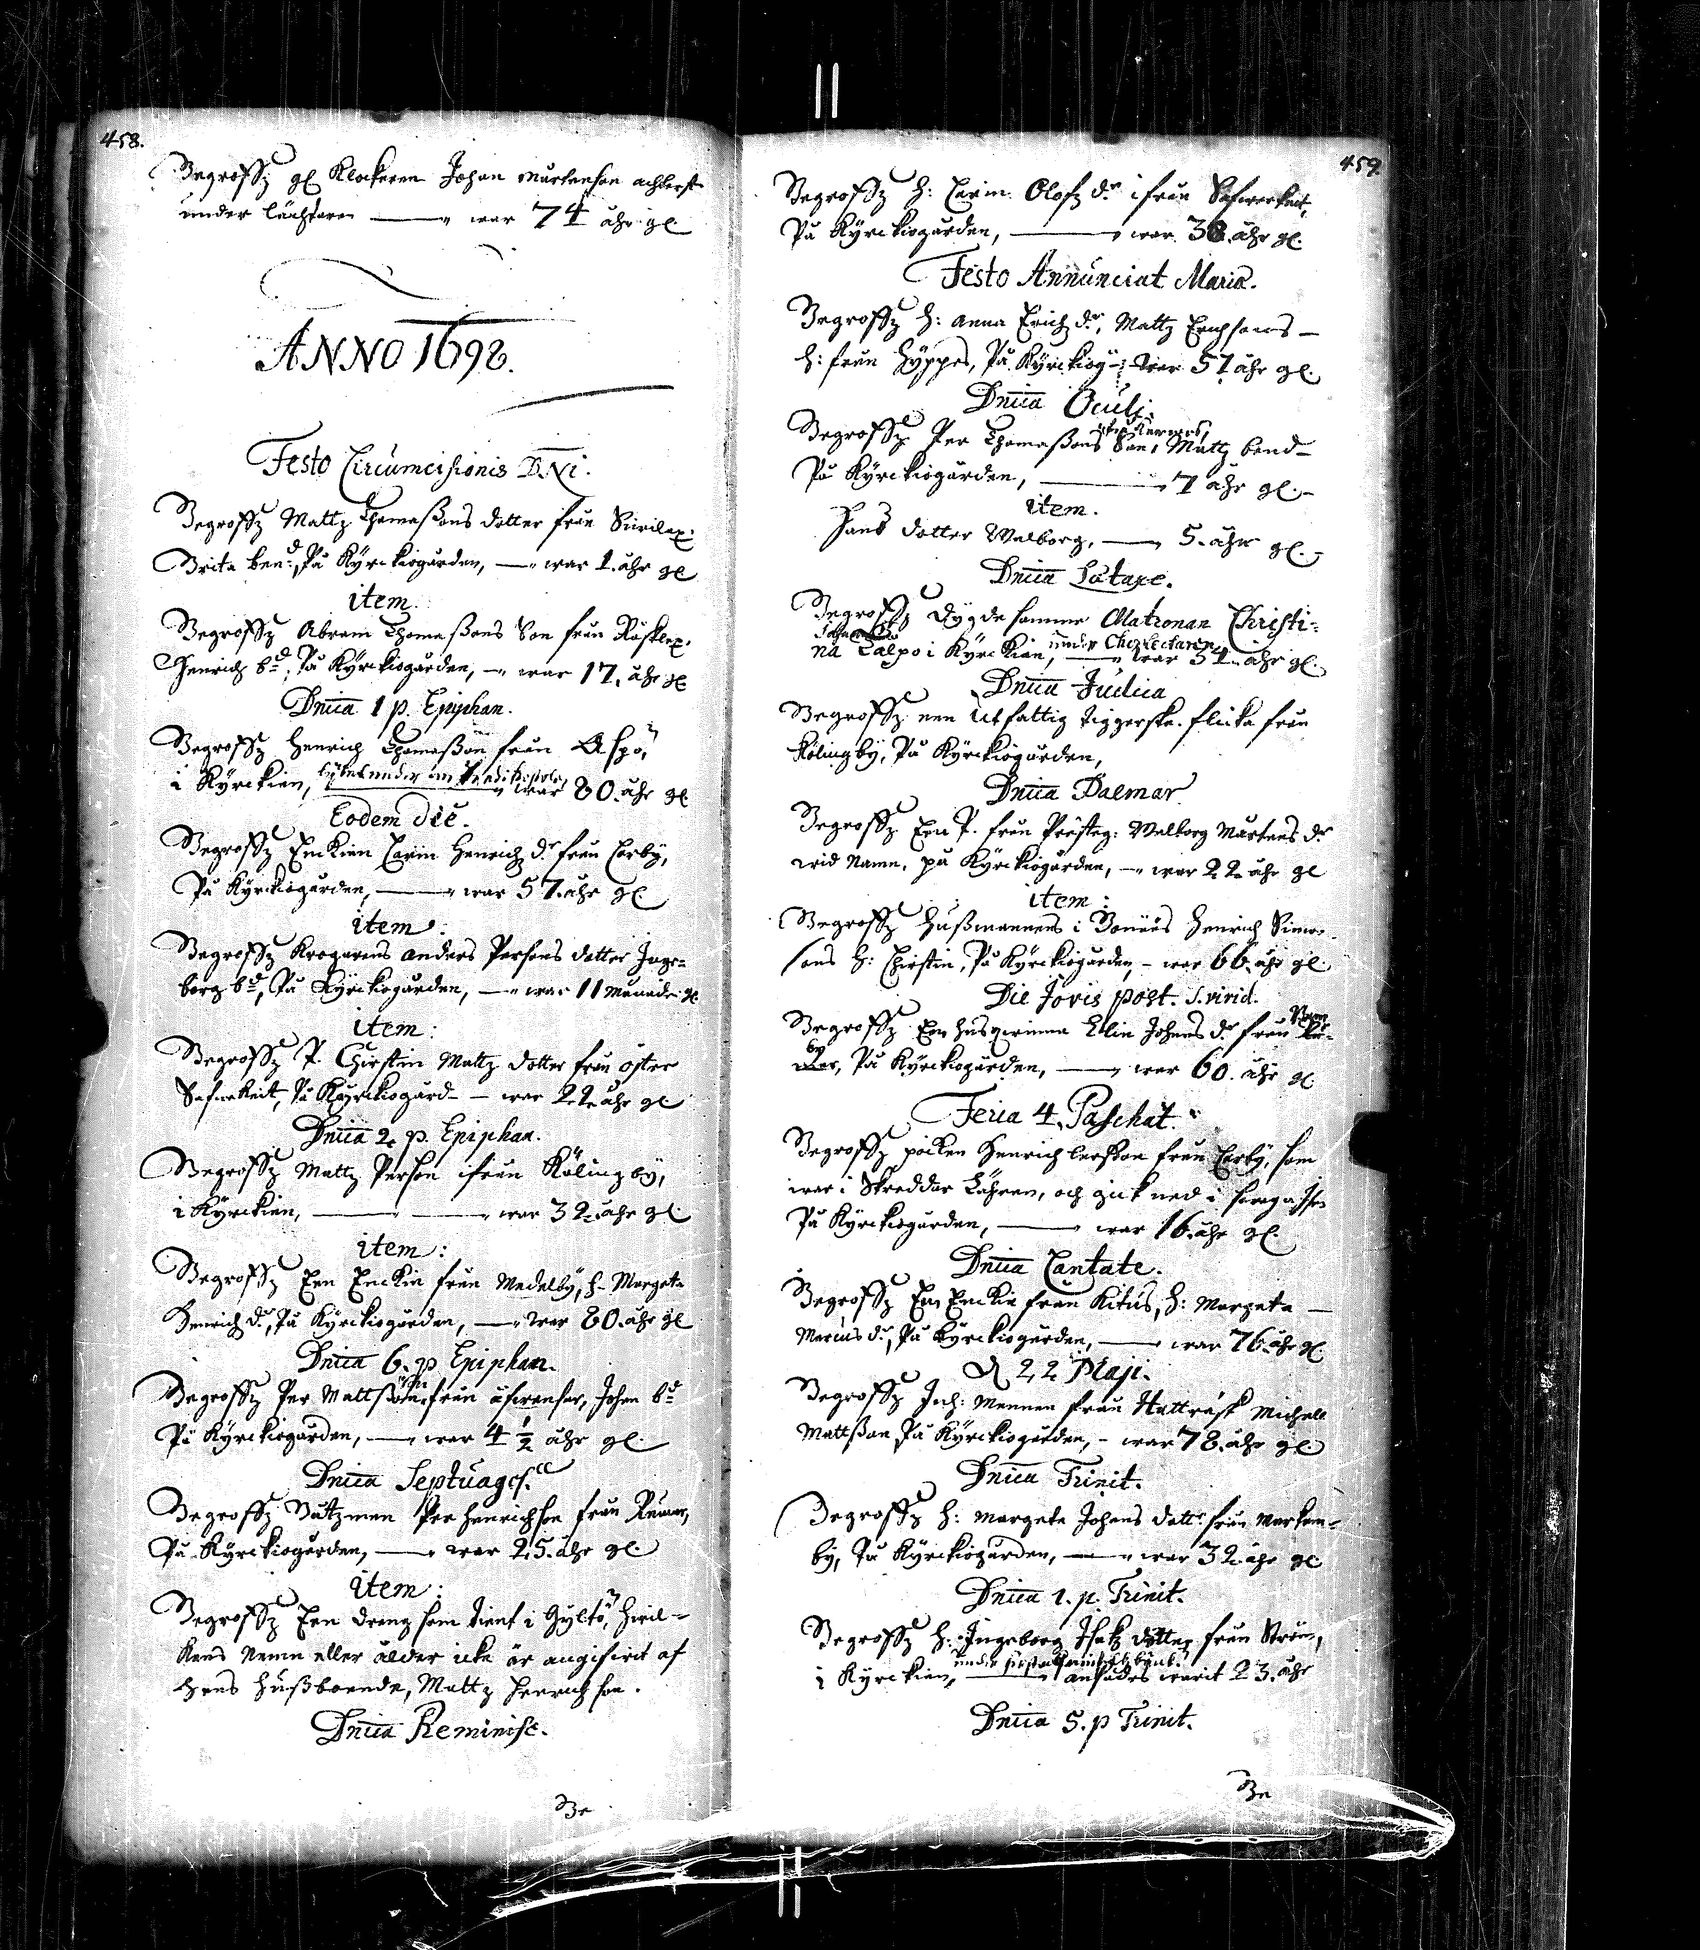 458.
Begroffz gl Klockaren Johan Mårtenson achterst
under lächtaren — war 74 åhr gl
ANNO 1698.
Festo Circumcisionis D.Ni.
Begroffz Mattz Thomaßons dotter från
Brita ben:d, På Kyrckiogården, — war 1. åhr gl
item
Begroffz Abram Thomaßons Son från
Henrich b:d, På Kyrckiogården, — war 17. åhr gl
Dniia 1 p. Epiphan.
Begroffz Henrich Thomaßon från Aspö,
i Kyrckian, war 80. åhr gl
Eodem die.
Begroffz Enckian Carin Henrich d:r från Corby,
På Kyrckiogården, — war 57. åhr gl.
item:
Begroffz Krogarens Anders Persons dotter Inge=
borg b:d, På Kyrckiogården, — war 11 Månader gl.
item:
Begroffz P. Chirstin Mattz dotter från öster
På Kyrckiogård — war 22. åhr gl
Dniia 2 p. Epiphan.
Begroffz Mattz Person ifrån Kålingby,
i Kyrckian, — war 32. åhr gl.
item:
Begroffz Een Enckia från Medelby, h. Margeta
Henrich d:r, På Kyrckiogården, — war 80. åhr gl
Dniia 6. p Epiphan.
Begroffz Per Mattßons från Johan b:d
På Kyrckiogården, — war 4 1/2 åhr gl.
Dniia Septuages.
Begroffz Båtzman Per Henrichson från
På Kyrckiogården, — war 25. åhr gl.
item:
Begroffz Een dreng som tient i Gyltö, hwil=
kens Namn eller ålder icke är angifwit af
hans hußbonde, Mattz Henrichson.
Dniia Reminisc.
Be
459
Begroffz h: Carin Olofz d:r ifrån
På Kyrckiogården, — war 38. åhr gl.
Festo Annunciat Mariæ.
Begroffz h: Anna Erich d:r, Mattz Erichsons —
h: från Hyppes, På Kyrckiog — war 57 åhr gl.
Dniia Oculi.
Begroffz Per Thomaßons Son, Mattz ben:d —
På Kyrckiogården, — 7 åhr gl. —
item.
Hans dotter Walborg, — 5. åhr gl. —
Dniia Lætare.
Begroffz Dygdesamme Matronan Christi=
na Calpo i Kyrckian, under Chor Lectaren war 54. åhr gl.
Dniia Judica
Begroffz een utfattig tiggerska. flicka från
Kålingby, På Kyrckiogården,
Dniia Palmar.
Begroffz Een P. från Prästeg: Walborg Mårtens d:r
wid Namn, på Kyrckiogården, — war 22. åhr gl
item:
Begroffz Hußmannens i Henrich Simon
sons h: Chirstin, På Kyrckiogården, — war 66. åhr gl.
Die Jovis post. S. virid.
Begroffz Een husqwinna Elin Johans d:r från
På Kyrckiogården, — war 60. åhr gl.
Feria 4. Paschat.
Begroffz poicken Henrich Larsson från Corby, som
war i Skreddar Lähran, och gick ned i
På Kyrckiogården, — war 16. åhr gl.
Dniia Cantate.
Begroffz Een Enckia från Kitus, h: Margeta —
Marcus d:r, På Kyrckiogården, — war 76. åhr gl.
D 22 Maji.
Begroffz Inh: Mannen från Hutträsk Michell
Mattßon På Kyrckiogården, — war 78. åhr gl
Dniia Trinit.
Begroffz h: Margeta Johans dott:r från Markom=
by, På Kyrckiogården, — war 32. åhr gl.
Dniia 1. p. Trinit.
Begroffz h: Ingeborg Isakz dotter från Ström,
i Kyrckian, — warit 23. åhr
Dniia 5. p Trinit.
Be